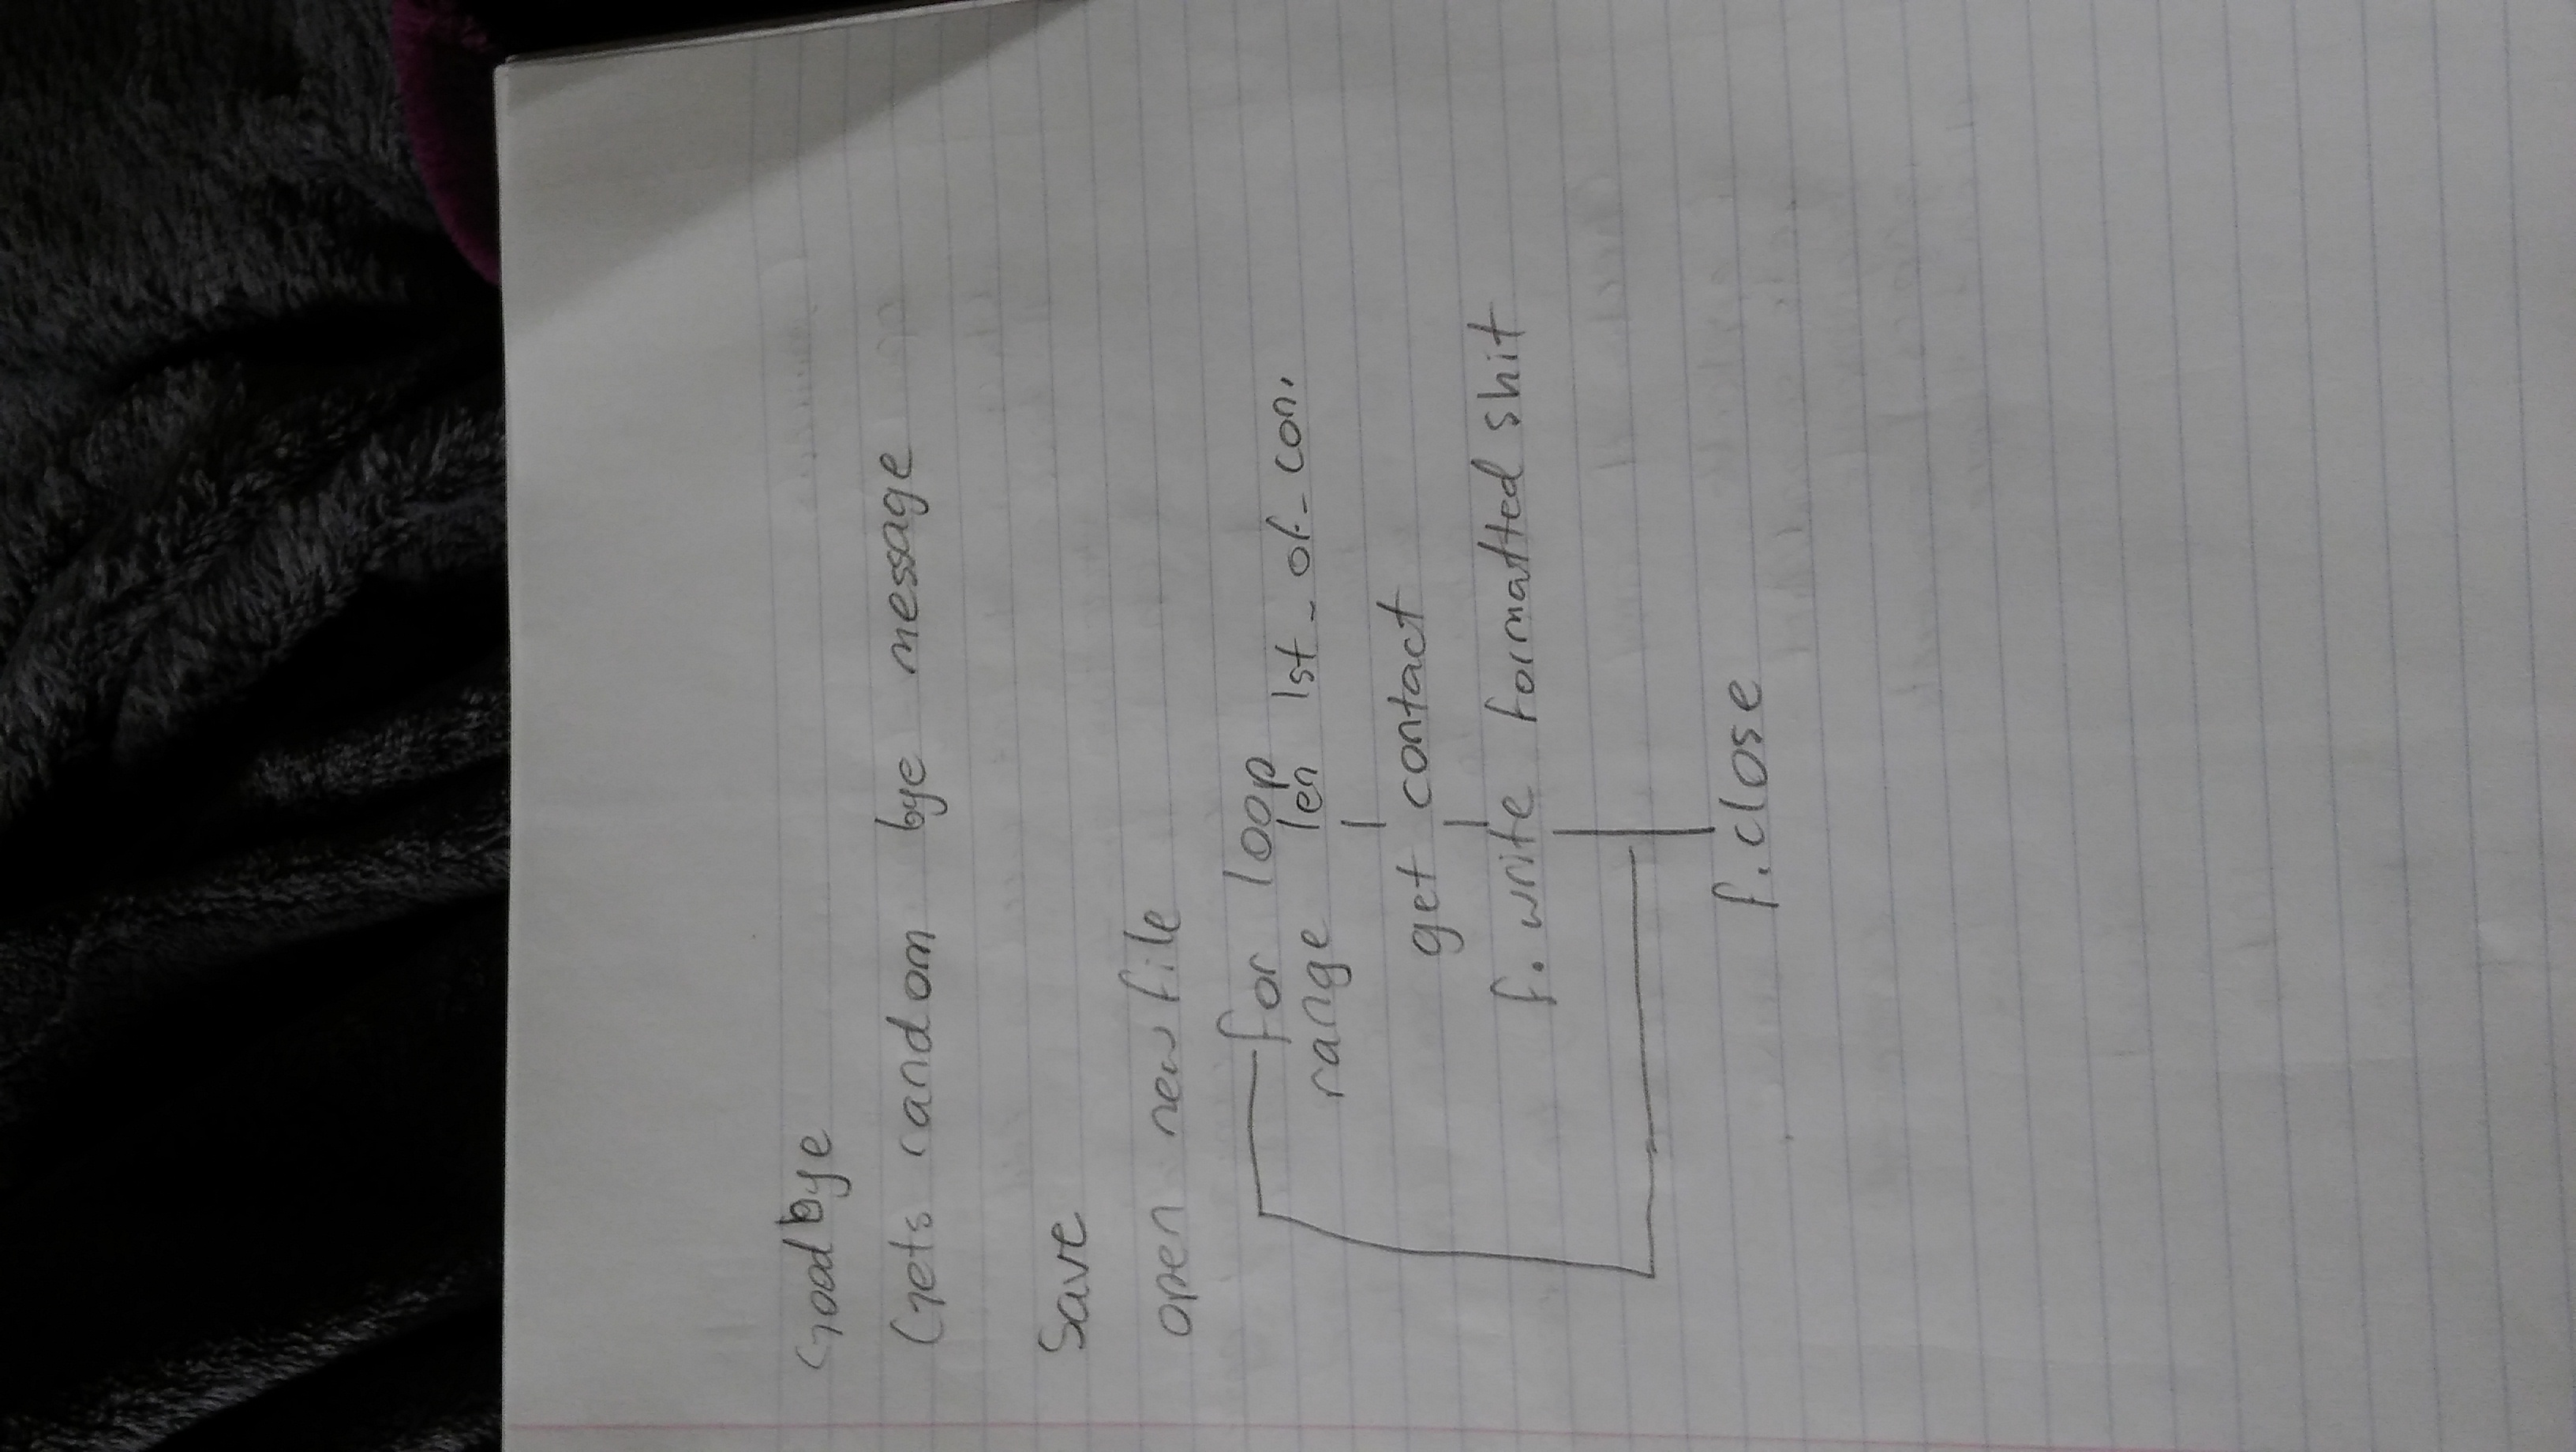 Goodbye
Gets random bye message
Save
open new file
for loop
range len lst_of_con.
get contact
f. write formatted shit
f. close